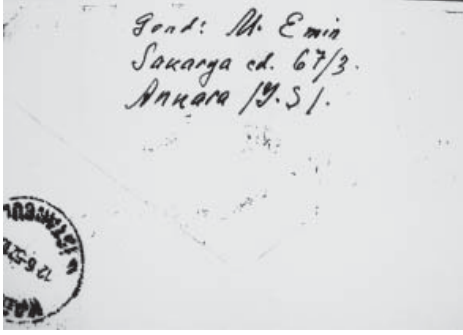 Gönd: M. Emin
Sakarya cd. 67/3.
Ankara /Y.S/.